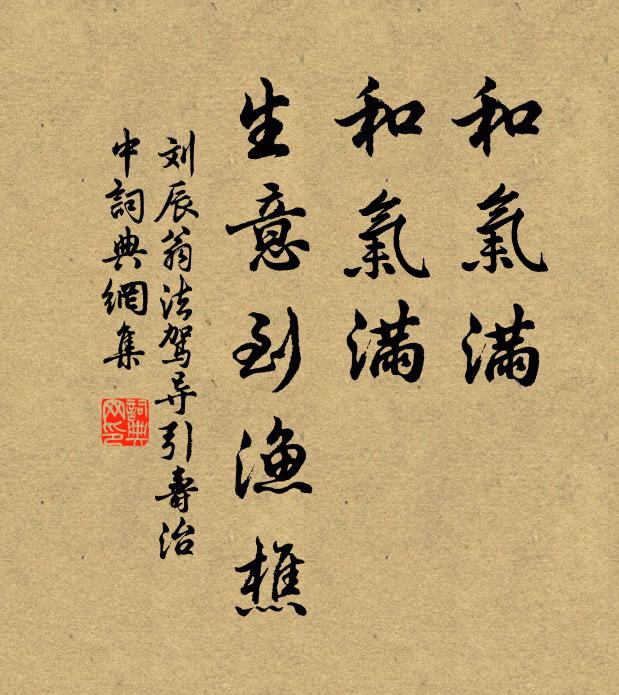 和氣滿
和氣滿
生意到漁樵
刘辰翁法驾导引壽治
中詞典網集
詞典
网印